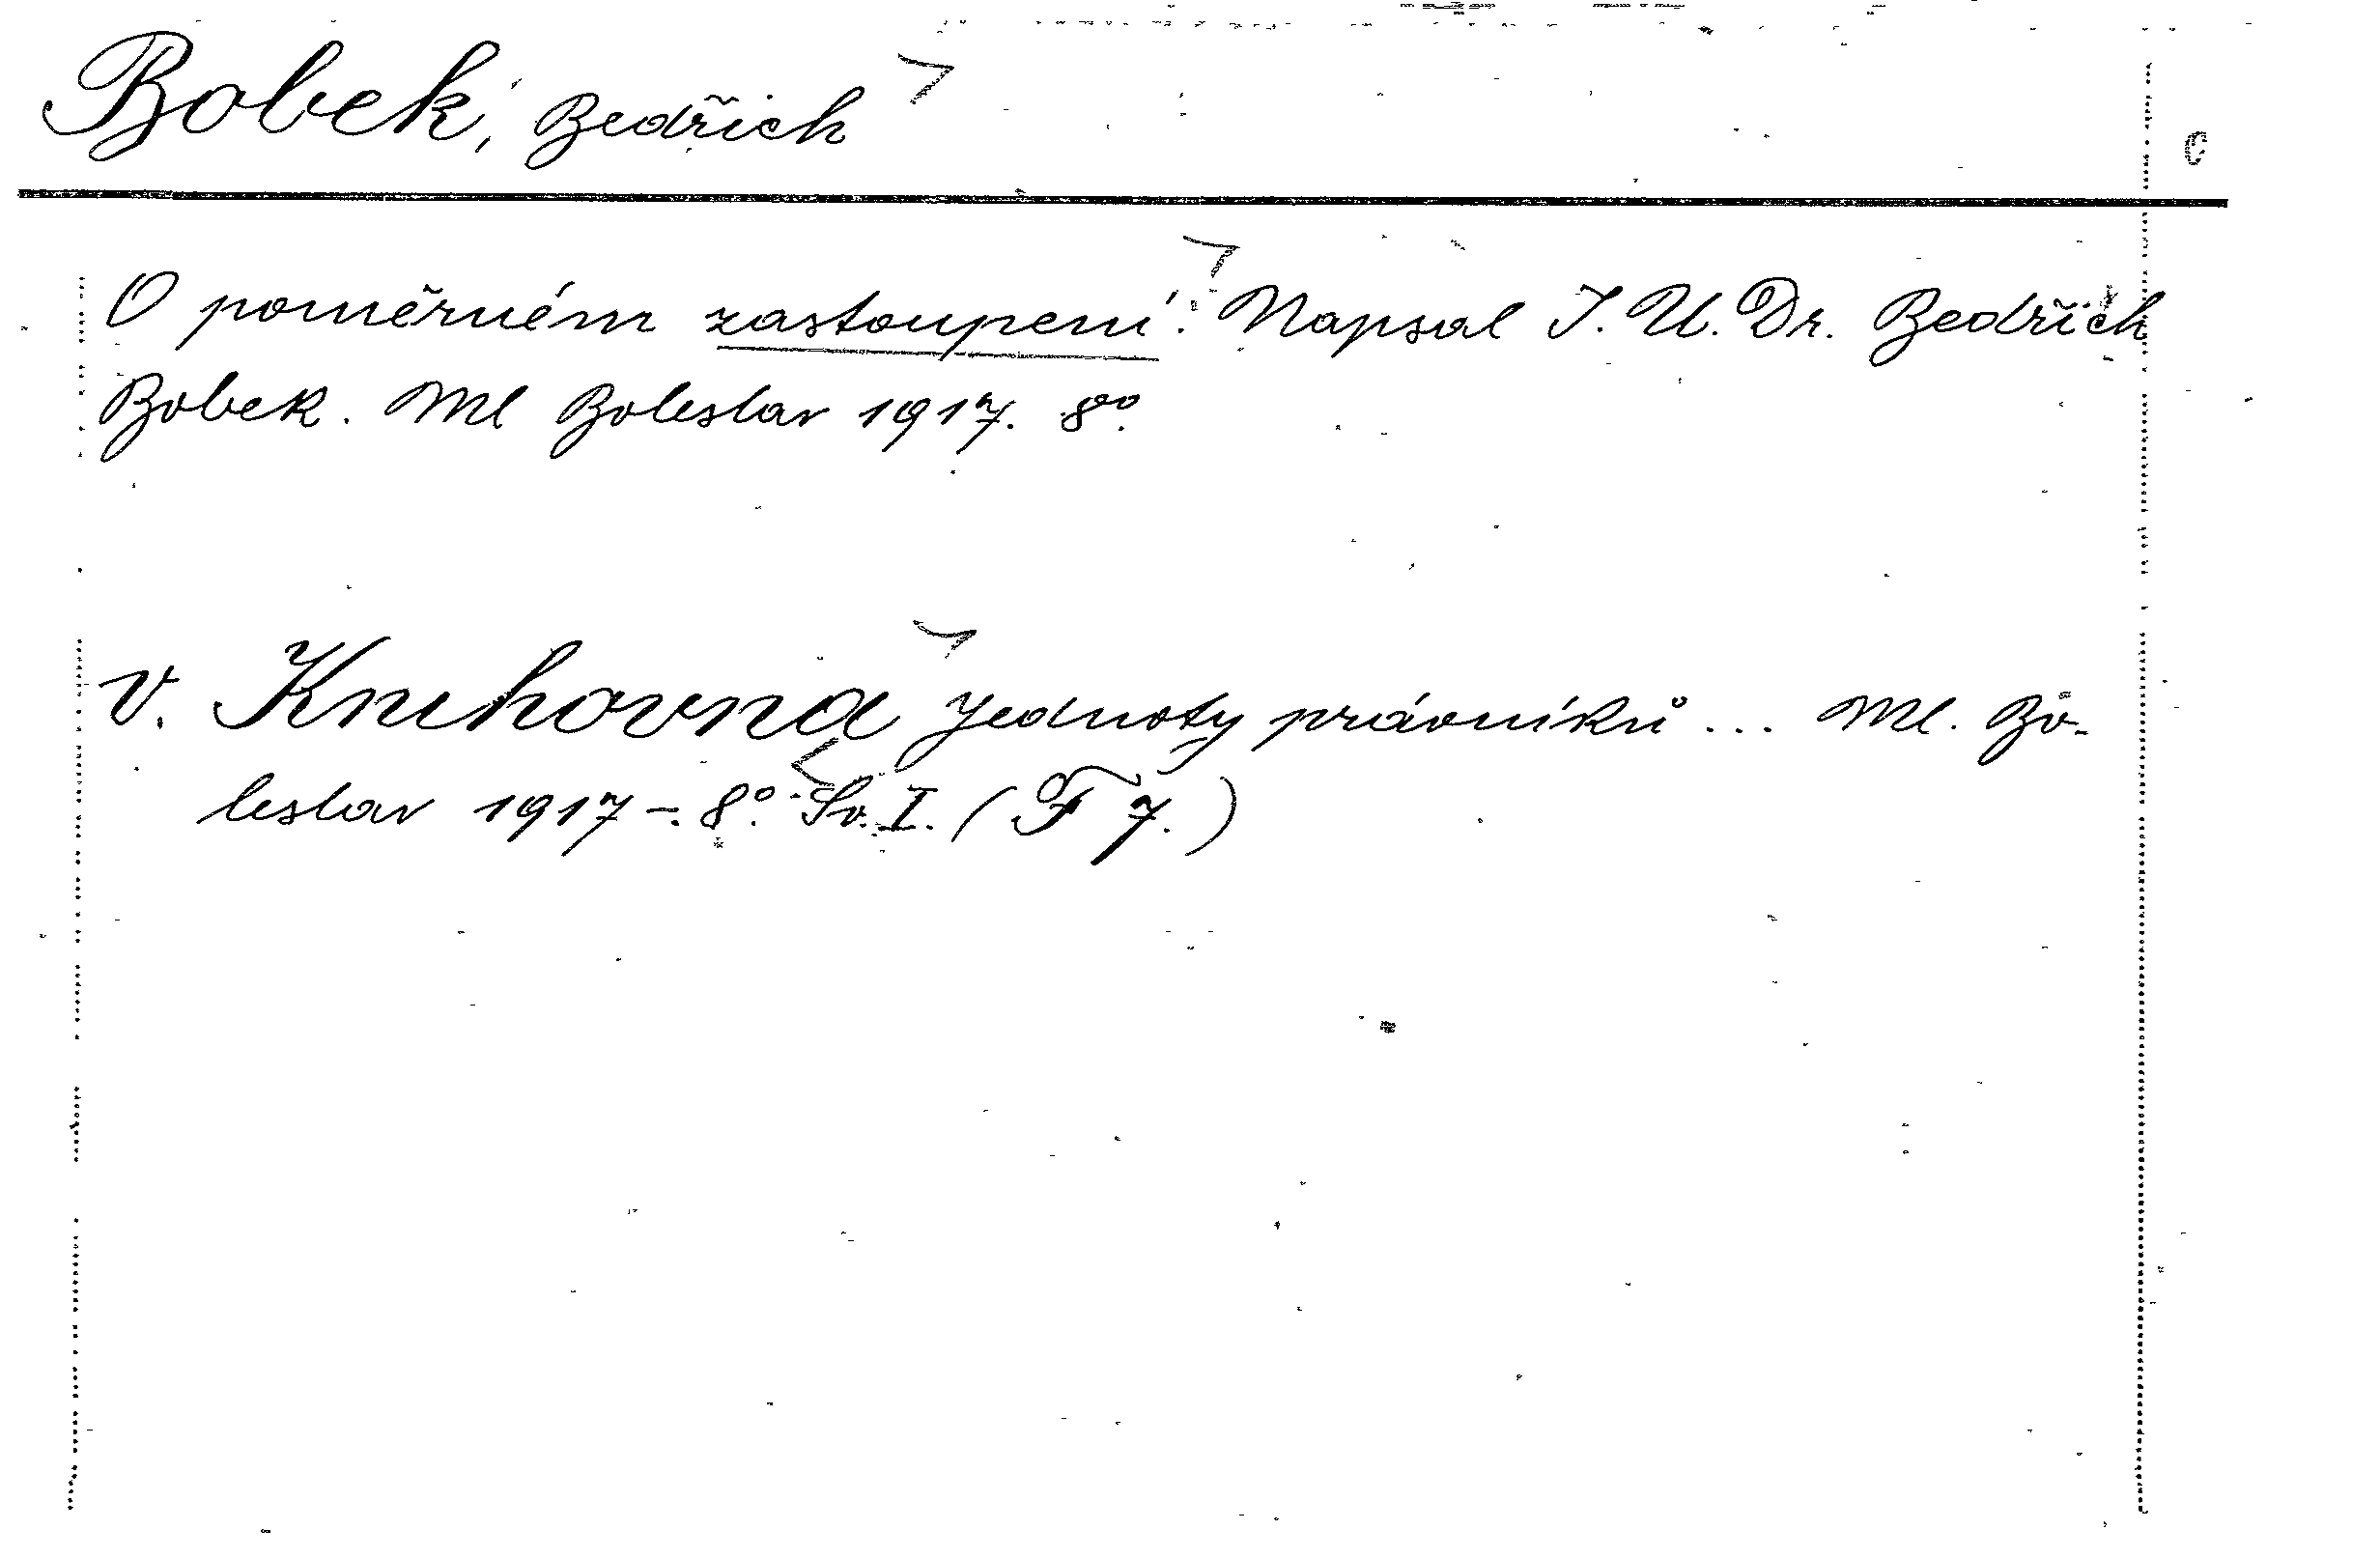 Bobek, Bedřich
O poměrném zastoupení. Napsal J. U. Dr. Bedřich
Bobek. Ml Boleslav 1917. 8⁰⁰.
v. Knihovna Jednoty právníků ... Ml. Bo-
leslav 1917 -. 8⁰. Sv. I. (F 7.)